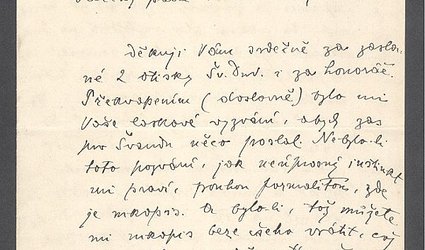 děkuji Vám srdečně za zasla-
né 2 otisky Šv. Dud. i za honorář.
Překvapením (doslovně) bylo mi
Vaše laskavé vyzvání, abych zas
pro Švandu něco poslal. Nebylo-li
toto pozvání, jak neúprosný instinkt
mi praví, pouhou formalitou, zde
je mkopis. A bylo-li, tož můžete
mi mkopis beze všeho vrátit, což